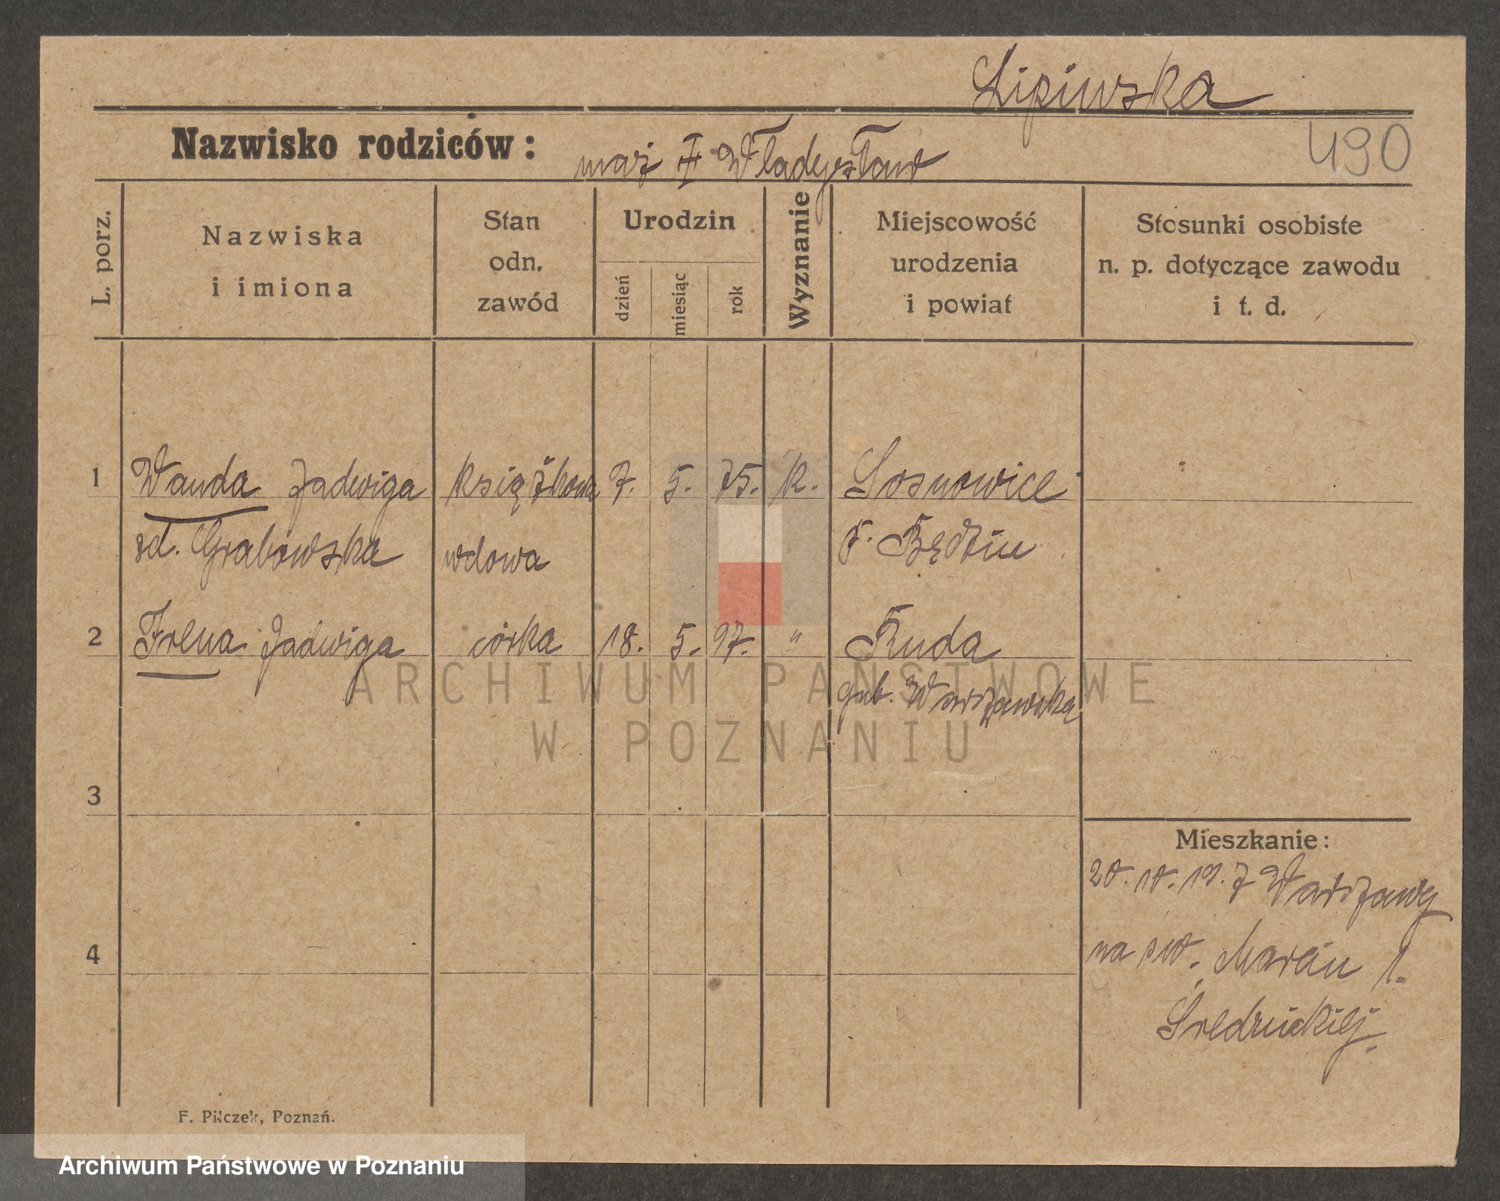 Lipińska
Nazwisko rodziców: mąż † Władysław
490
L. porz.
Nazwiska
i imiona
Stan
odn.
zawód
Urodzin
dzień
miesiąc
rok
Wyznanie
Miejscowość
urodzenia
i powiat
Stosunki osobiste
n. p. dotyczące zawodu
i t. d.
1 Wanda Jadwiga książkowa 7. 5. 75. k. Sosnowice
zd. Grabowska wdowa p. Będzin
2 Irena Jadwiga córka 18. 5. 97. " Ruda
gub. Warszawska
ARCHIWUM PAŃSTWOWE
W POZNANIU
3
Mieszkanie:
20. 10. 19. z Warszawy
4
na św. Marcin 1.
F. Pilczek, Poznań.
Archiwum Państwowe w Poznaniu